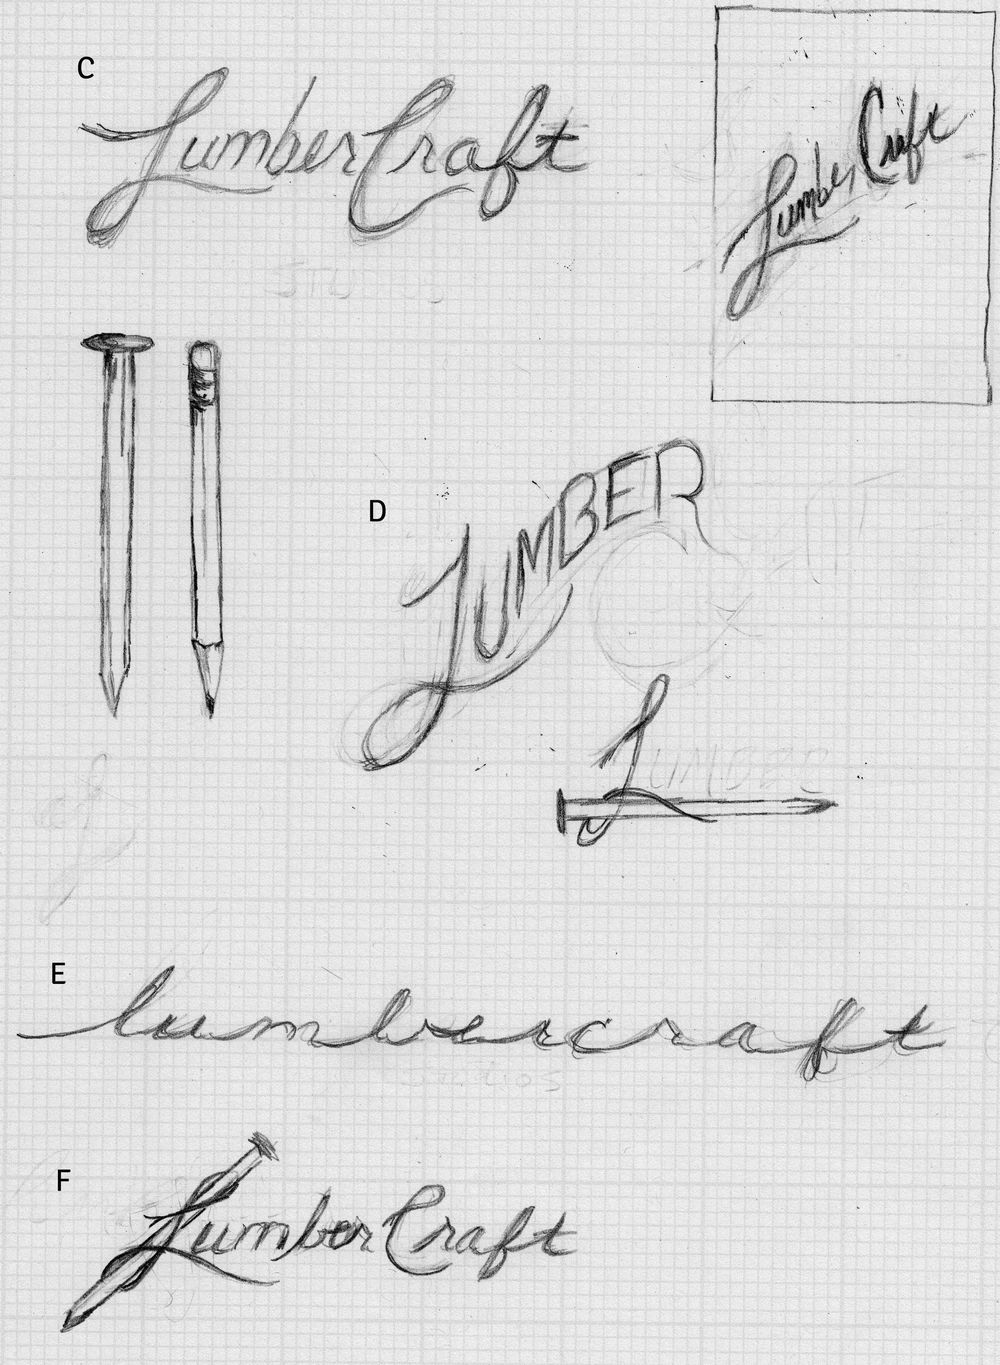 C
LumberCraft
LumberCraft
STUDIOS
D
LUMBER
LUMBER
E
lumbercraft
Studios
F
LumberCraft